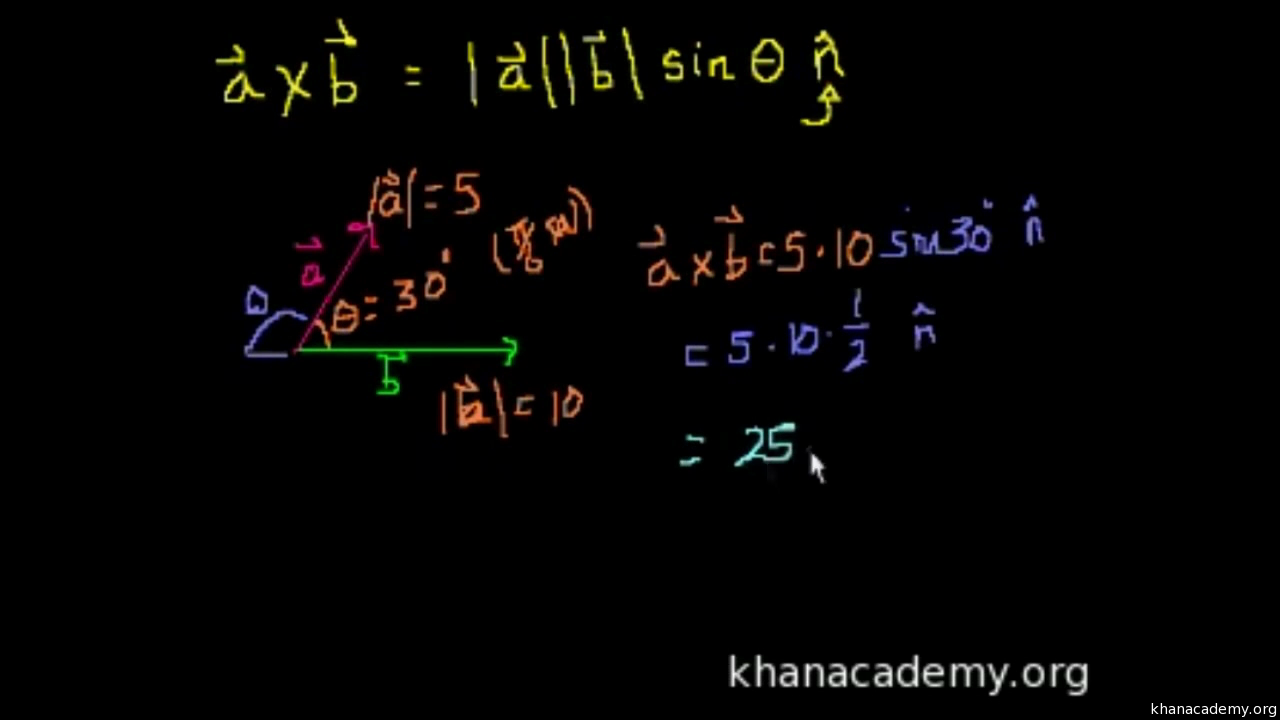 a⃗ x b⃗ = |a⃗||b⃗| sin θ n̂
|a⃗| = 5
a⃗
θ = 30° (π/6 rad)
b⃗
|b⃗| = 10
a⃗ x b⃗ = 5 · 10 sin 30° n̂
= 5 · 10 · 1/2 n̂
= 25
khanacademy.org
khanacademy.org